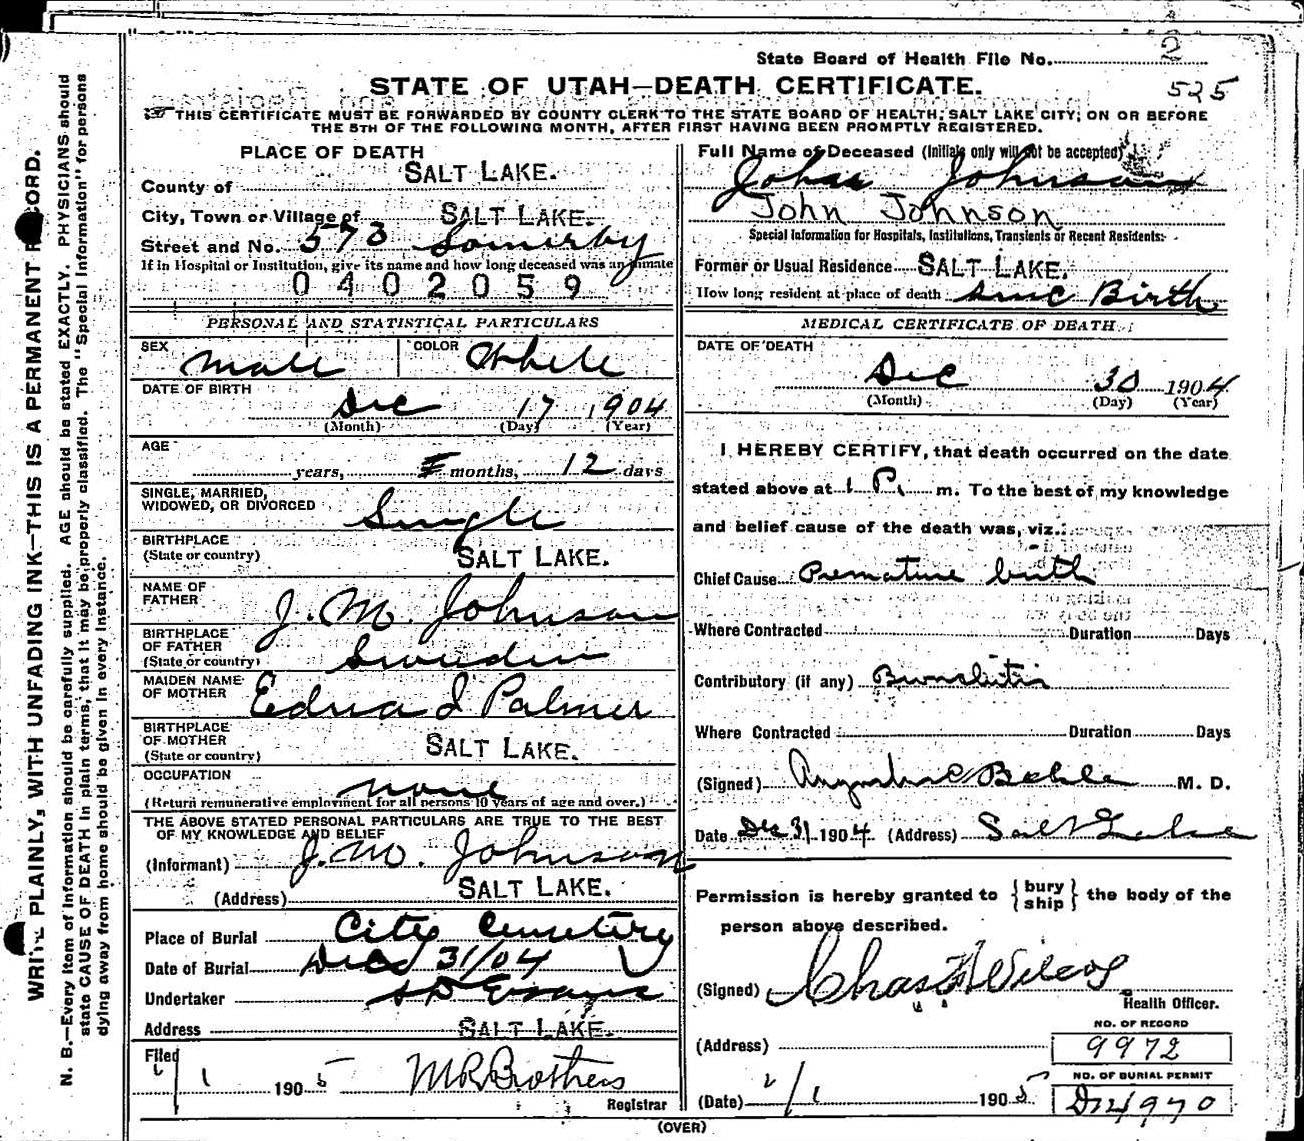 2
State Board of Health File No.
525
STATE OF UTAH—DEATH CERTIFICATE.
THIS CERTIFICATE MUST BE FORWARDED BY COUNTY CLERK TO THE STATE BOARD OF HEALTH, SALT LAKE CITY, ON OR BEFORE
THE 5TH OF THE FOLLOWING MONTH, AFTER FIRST HAVING BEEN PROMPTLY REGISTERED.
WRITE PLAINLY, WITH UNFADING INK—THIS IS A PERMANENT RECORD.
N. B.—Every item of information should be carefully supplied. AGE should be stated EXACTLY. PHYSICIANS should
state CAUSE OF DEATH in plain terms, that it may be properly classified. The "Special Information" for persons
dying away from home should be given in every instance.
PLACE OF DEATH
County of SALT LAKE.
City, Town or Village of SALT LAKE.
Street and No. 573 Somerby
If in Hospital or Institution, give its name and how long deceased was an inmate
0402059
PERSONAL AND STATISTICAL PARTICULARS
SEX Male COLOR White
DATE OF BIRTH
Dec 17 1904
(Month) (Day) (Year)
AGE
years, months, 12 days
SINGLE, MARRIED,
WIDOWED, OR DIVORCED Single
BIRTHPLACE
(State or country) SALT LAKE.
NAME OF
FATHER J. M. Johnson
BIRTHPLACE
OF FATHER
(State or country) Sweden
MAIDEN NAME
OF MOTHER Edna I Palmer
BIRTHPLACE
OF MOTHER
(State or country) SALT LAKE.
OCCUPATION none
(Return remunerative employment for all persons 10 years of age and over.)
THE ABOVE STATED PERSONAL PARTICULARS ARE TRUE TO THE BEST
OF MY KNOWLEDGE AND BELIEF
(Informant) J. M. Johnson
(Address) SALT LAKE.
Place of Burial City Cemetery
Date of Burial Dec 31/04
Undertaker S D Evans
Address SALT LAKE.
Filed
1/1 1905 M R Brothers
Registrar
Full Name of Deceased (Initials only will not be accepted)
John Johnson
John Johnson
Special Information for Hospitals, Institutions, Transients or Recent Residents:
Former or Usual Residence SALT LAKE.
How long resident at place of death Since Birth
MEDICAL CERTIFICATE OF DEATH
DATE OF DEATH
Dec 30 1904
(Month) (Day) (Year)
I HEREBY CERTIFY, that death occurred on the date
stated above at 1 P. m. To the best of my knowledge
and belief cause of the death was, viz.:
Chief Cause Premature birth
Where Contracted Duration Days
Contributory (if any)
Where Contracted Duration Days
(Signed) M. D.
Date Dec 31 1904 (Address) Salt Lake
Permission is hereby granted to { bury ship } the body of the
person above described.
(Signed) Chas Wilcox
Health Officer.
(Address)
NO. OF RECORD
9972
(Date) 1/1 1905
NO. OF BURIAL PERMIT
D 14970
(OVER)